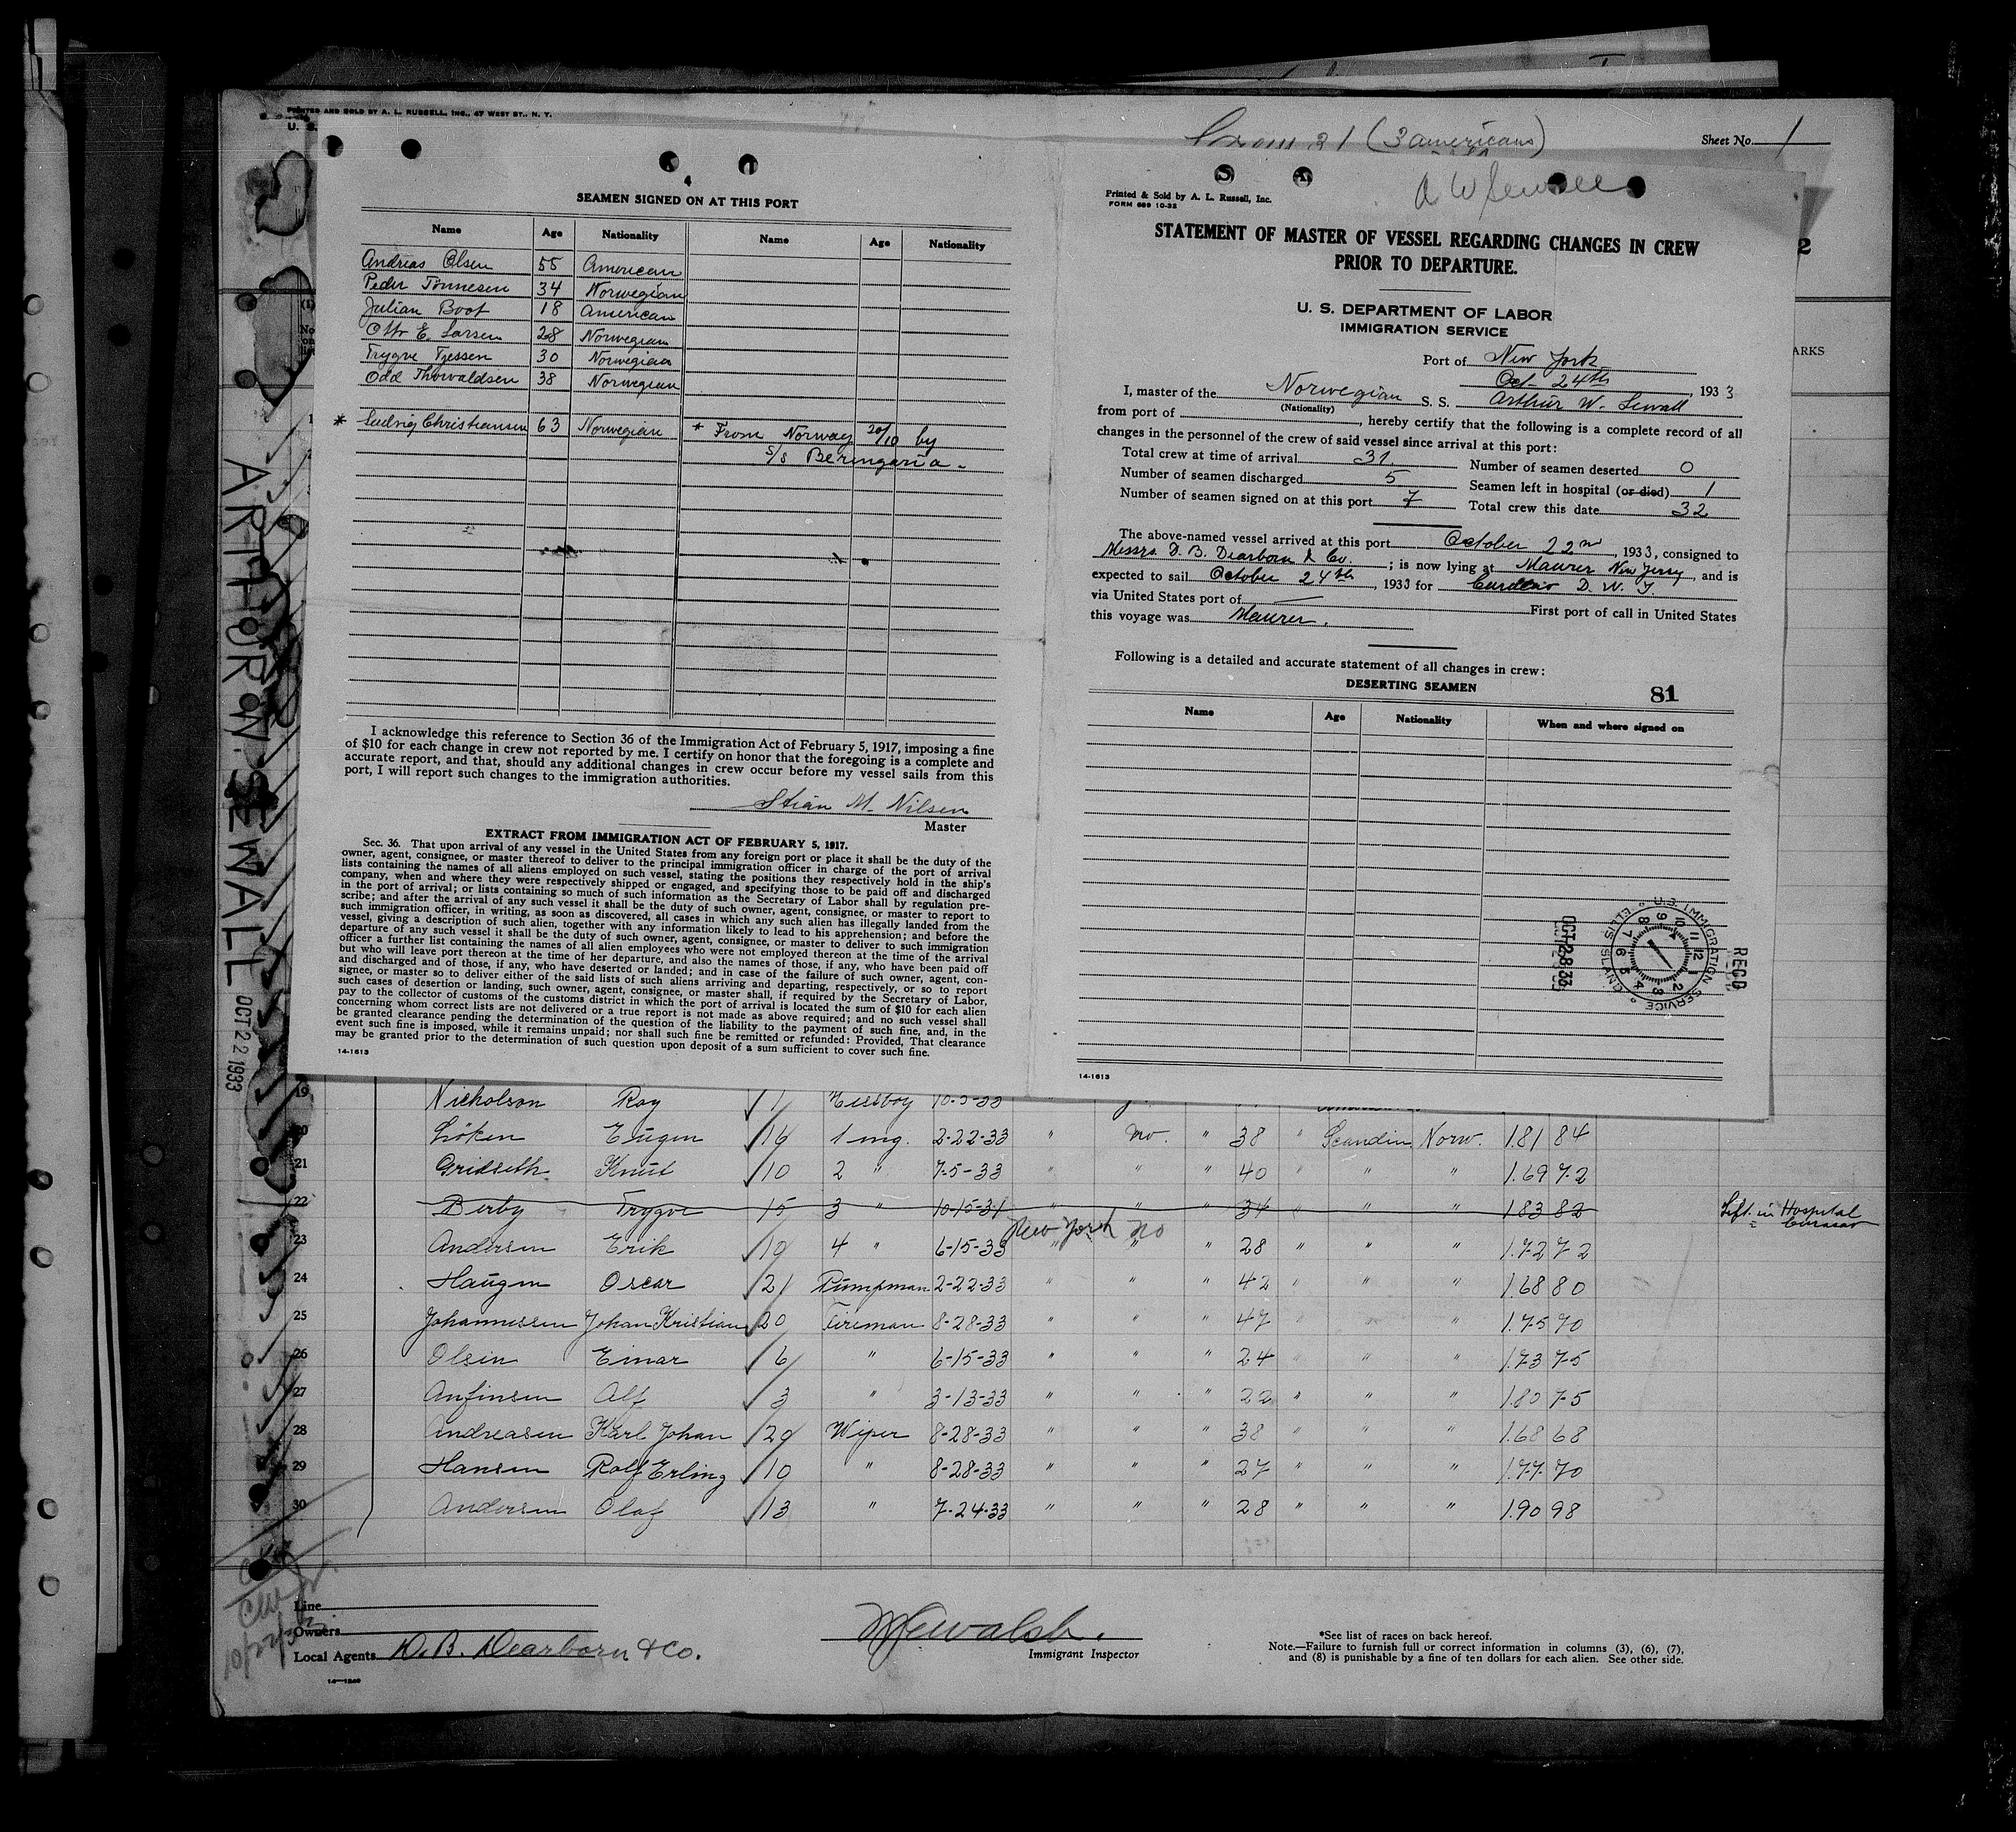 PRINTED AND SOLD BY A. L. RUSSELL, INC., 47 WEST ST., N. Y.
U. S.
31 (3 americans)
Sheet No. 1
4
SEAMEN SIGNED ON AT THIS PORT
Name Age Nationality Name Age Nationality
Andreas Olsen 55 American
Peder Tönnesen 34 Norwegian
Julian Boot 18 American
Otto E. Larsen 28 Norwegian
Trygve Tjessen 30 Norwegian
Odd Thorvaldsen 38 Norwegian
* Ludvig Christiansen 63 Norwegian * From Norway 20/10 by
s/s Berengaria.
I acknowledge this reference to Section 36 of the Immigration Act of February 5, 1917, imposing a fine
of $10 for each change in crew not reported by me. I certify on honor that the foregoing is a complete and
accurate report, and that, should any additional changes in crew occur before my vessel sails from this
port, I will report such changes to the immigration authorities.
Stian M. Nilsen
Master
EXTRACT FROM IMMIGRATION ACT OF FEBRUARY 5, 1917.
Sec. 36. That upon arrival of any vessel in the United States from any foreign port or place it shall be the duty of the
owner, agent, consignee, or master thereof to deliver to the principal immigration officer in charge of the port of arrival
lists containing the names of all aliens employed on such vessel, stating the positions they respectively hold in the ship's
company, when and where they were respectively shipped or engaged, and specifying those to be paid off and discharged
in the port of arrival; or lists containing so much of such information as the Secretary of Labor shall by regulation pre-
scribe; and after the arrival of any such vessel it shall be the duty of such owner, agent, consignee, or master to report to
such immigration officer, in writing, as soon as discovered, all cases in which any such alien has illegally landed from the
vessel, giving a description of such alien, together with any information likely to lead to his apprehension; and before the
departure of any such vessel it shall be the duty of such owner, agent, consignee, or master to deliver to such immigration
officer a further list containing the names of all alien employees who were not employed thereon at the time of the arrival
but who will leave port thereon at the time of her departure, and also the names of those, if any, who have been paid off
and discharged and of those, if any, who have deserted or landed; and in case of the failure of such owner, agent, con-
signee, or master so to deliver either of the said lists of such aliens arriving and departing, respectively, or so to report
such cases of desertion or landing, such owner, agent, consignee, or master shall, if required by the Secretary of Labor,
pay to the collector of customs of the customs district in which the port of arrival is located the sum of $10 for each alien
concerning whom correct lists are not delivered or a true report is not made as above required; and no such vessel shall
be granted clearance pending the determination of the question of the liability to the payment of such fine, and, in the
event such fine is imposed, while it remains unpaid; nor shall such fine be remitted or refunded: Provided, That clearance
may be granted prior to the determination of such question upon deposit of a sum sufficient to cover such fine.
14-1613
Printed & Sold by A. L. Russell, Inc.
FORM 689 10-32
A W Sewall
STATEMENT OF MASTER OF VESSEL REGARDING CHANGES IN CREW
PRIOR TO DEPARTURE.
U. S. DEPARTMENT OF LABOR
IMMIGRATION SERVICE
Port of New York
Oct- 24th, 1933
I, master of the Norwegian S. S. Arthur W. Sewall
(Nationality)
from port of , hereby certify that the following is a complete record of all
changes in the personnel of the crew of said vessel since arrival at this port:
Total crew at time of arrival 31. Number of seamen deserted 0
Number of seamen discharged 5 Seamen left in hospital (or died) 1
Number of seamen signed on at this port 7 Total crew this date 32
The above-named vessel arrived at this port October 22nd, 1933, consigned to
Messrs. D. B. Dearborn & Co ; is now lying at Maurer New Jersey, and is
expected to sail October 24th, 1933 for Curacao D. W. I.
via United States port of — First port of call in United States
this voyage was Maurer.
Following is a detailed and accurate statement of all changes in crew:
DESERTING SEAMEN
81
Name Age Nationality When and where signed on
U.S. IMMIGRATION SERVICE ELLIS ISLAND
REC'D
OCT 28 33
14-1613
2
ARKS
ARTHOR W. SEWALL
OCT 22 1933
19 Nicholson Roy 1 Messboy 10-5-33
20 Löken Eugen 14 1 eng. 2-22-33 " no. " 38 " Scandin Norw. 1.81 84
21 Gridseth Knut 10 2 " 7-5-33 " " " 40 " " " 1.69 72
22 Berby Trygve 15 3 " 10-15-31 " " " 34 " " " 183 82 Left in Hospital
Curacao
23 Andersen Erik 10 4 " 6-15-33 New York no " 28 " " " 1.72 72
24 Haugen Oscar 21 Pumpman 2-22-33 " " " 42 " " " 1.68 80
25 Johannessen Johan Kristian 20 Fireman 8-28-33 " " " 47 " " " 1.75 70
26 Olsen Einar 6 " 6-15-33 " " " 24 " " " 1.73 75
27 Anfinsen Alf 3 " 3-13-33 " " " 22 " " " 1.80 75
28 Andreasen Karl Johan 20 Wiper 8-28-33 " " " 38 " " " 1.68 68
29 Hansen Rolf Erling 10 " 8-28-33 " " " 27 " " " 1.77 70
30 Andersen Olaf 13 " 7-24-33 " " " 28 " " " 1.90 98
Line
Owners
Local Agents D. B. Dearborn & Co.
Immigrant Inspector
*See list of races on back hereof.
Note.—Failure to furnish full or correct information in columns (3), (6), (7),
and (8) is punishable by a fine of ten dollars for each alien. See other side.
14—1240